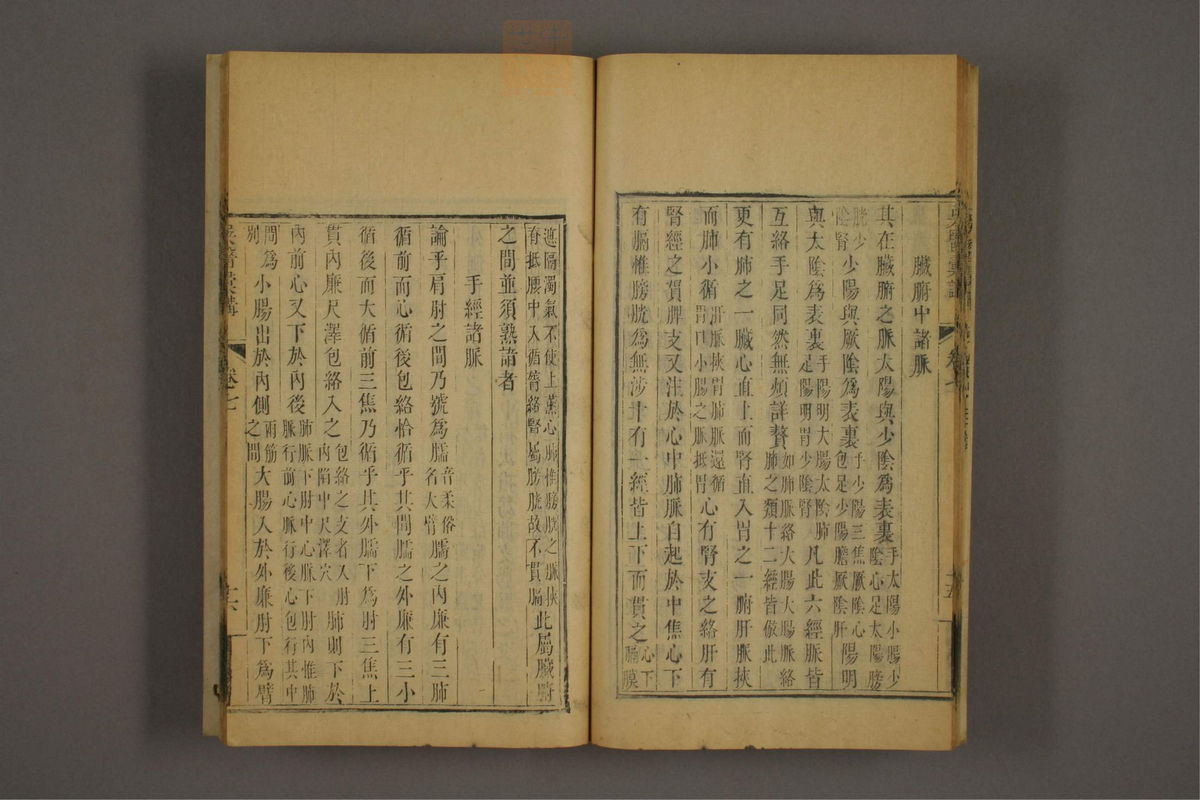 臟腑中諸脈
其在臟腑之脈太陽與少陰爲表裏手太陽小腸少陰心足太陽膀
胱少陰腎少陽與厥陰爲表裏手少陽三焦厥陰心包足少陽膽厥陰肝陽明
與太陰爲表裏手陽明大腸太陰肺足陽明胃少陰腎凡此六經脈皆
互絡手足同然無煩詳贅如肺脈絡大腸大腸脈絡肺之類十二經皆倣此
更有肺之一臟心直上而腎直入胃之一腑肝脈挾
而肺小循肝脈挾胃肺脈還循胃口小腸之脈抵胃心有腎支之絡肝有
腎經之貫脾支又注於心中肺脈自起於中焦心下
有膈惟膀胱爲無涉十有一經皆上下而貫之心下膈膜
遮隔濁氣不使上薰心肺惟膀胱之脈挾脊抵腰中入循膂絡腎屬膀胱故不貫膈此屬臟腑
之間並須熟諳者
手經諸脈
論乎肩肘之間乃號爲臑音柔俗名大臂臑之內廉有三肺
循前而心循後包絡恰循乎其間臑之外廉有三小
循後而大循前三焦乃循乎其外臑下爲肘三焦上
貫內廉尺澤包絡入之包絡之支者入肘內陷中尺澤穴肺則下於
內前心又下於內後肺脈下肘中心脈下肘內惟肺脈行前心脈行後心包行其中
間爲小腸出於內側兩筋之間大腸入於外廉肘下爲臂
吳醫彙講
卷七